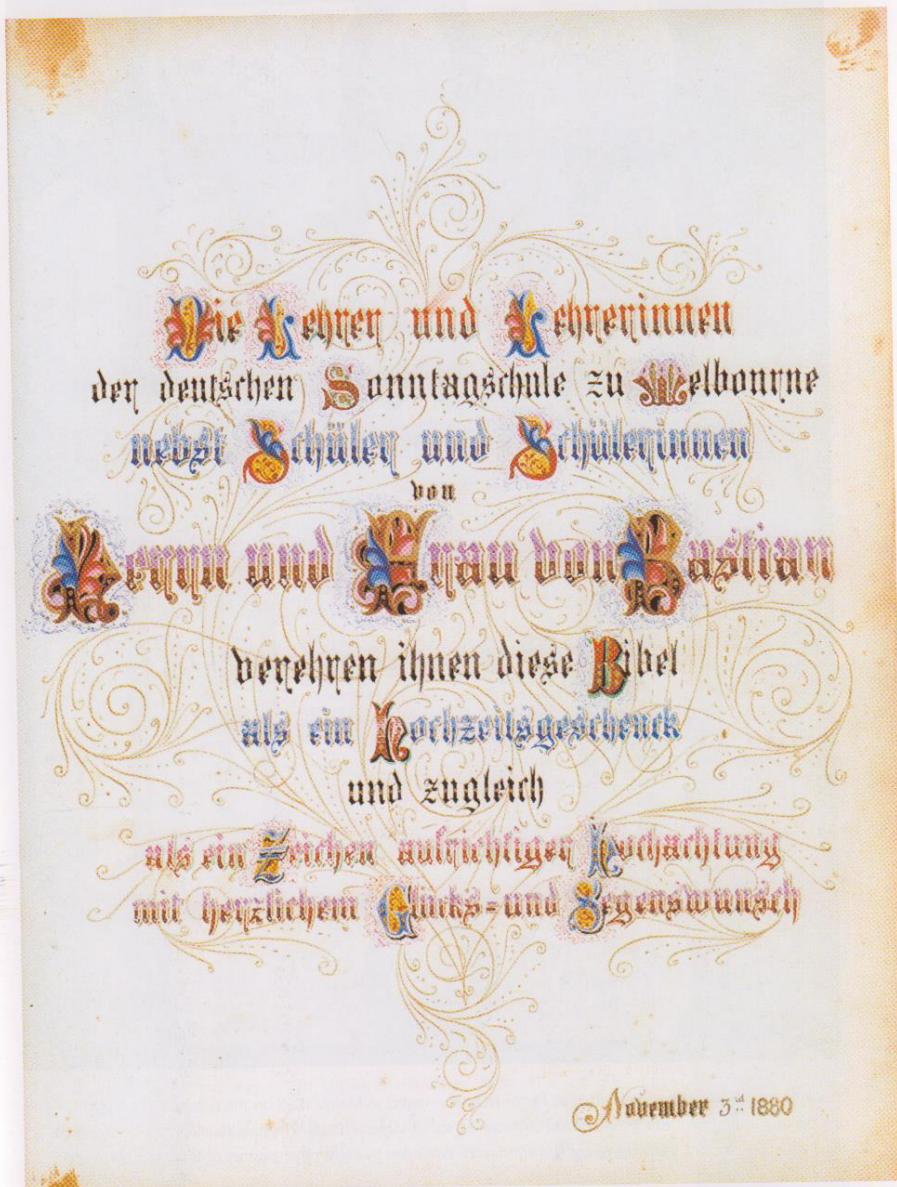 Die Lehrer und Lehrerinnen
der deutschen Sonntagschule zu Melbourne
nebst Schüler und Schülerinnen
von
Herrn und Frau von Bastian
verehren ihnen diese Bibel
als ein Hochzeitsgeschenck
und zugleich
als ein Zeichen aufrichtiger Hochachtung
mit herzlichem Glücks=und Segenswunsch
November 3rd 1880